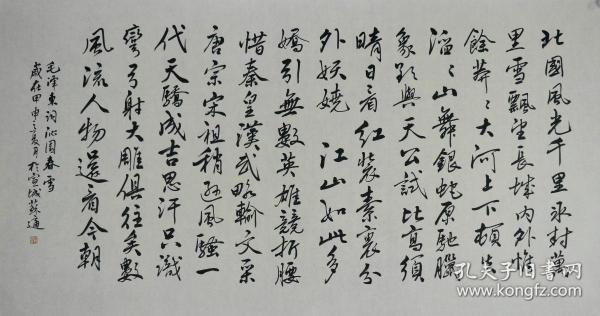 北國風光千里冰封萬
里雪飄望長城内外惟
餘莽〻大河上下頓失
滔〻山舞銀蛇原馳臘
象欲與天公試比高須
晴日看紅裝素裹分
外妖嬈 江山如此多
嬌引無數英雄競折腰
惜秦皇漢武略輸文采
唐宗宋祖稍遜風騷一
代天驕成吉思汗只識
彎弓射大雕俱往矣數
風流人物還看今朝
毛澤東詞沁園春 雪
歲在甲申之夏月於宣城蘇適
孔夫子旧书网
www.kongfz.com